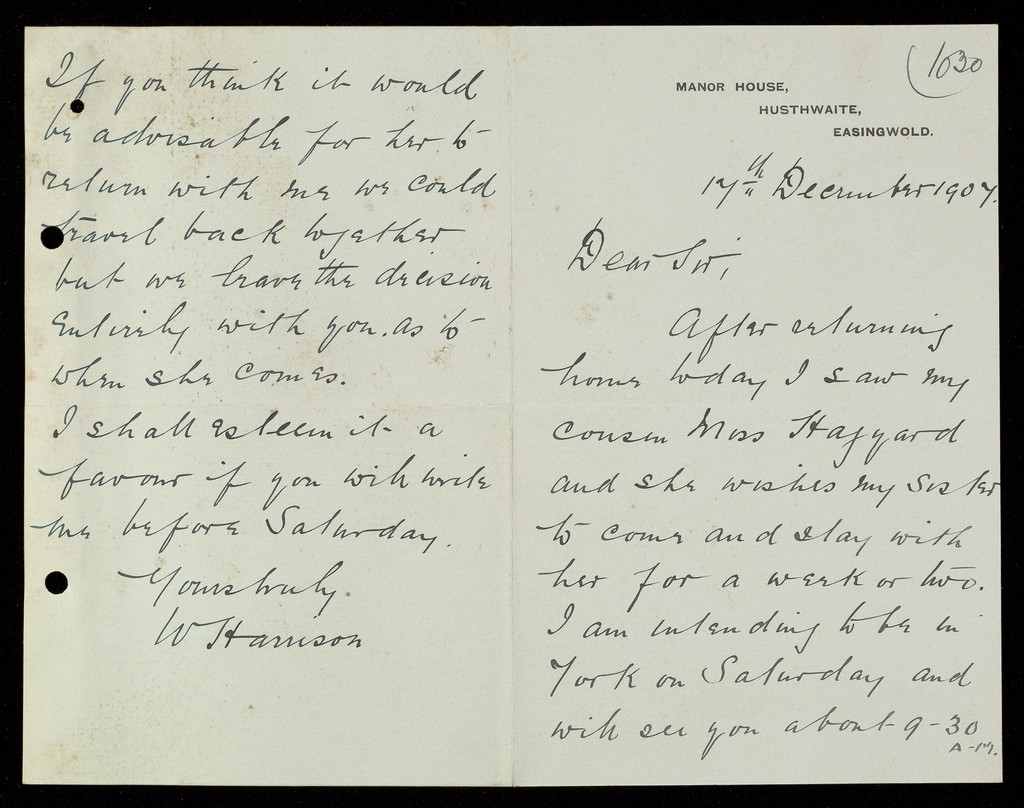 (1030
MANOR HOUSE,
HUSTHWAITE,
EASINGWOLD.
17th December 1907.
Dear Sir,
After returning
home today I saw my
cousin Miss Haggard
and she wishes my sister
to come and stay with
her for a week or two.
I am intending to be in
York on Saturday and
will see you about 9-30
A-M.
If you think it would
be advisable for her to
return with me we could
travel back together
but we leave the decision
entirely with you. as to
when she comes.
I shall esteem it a
favour if you will write
me before Saturday.
Yours truly
W Harrison